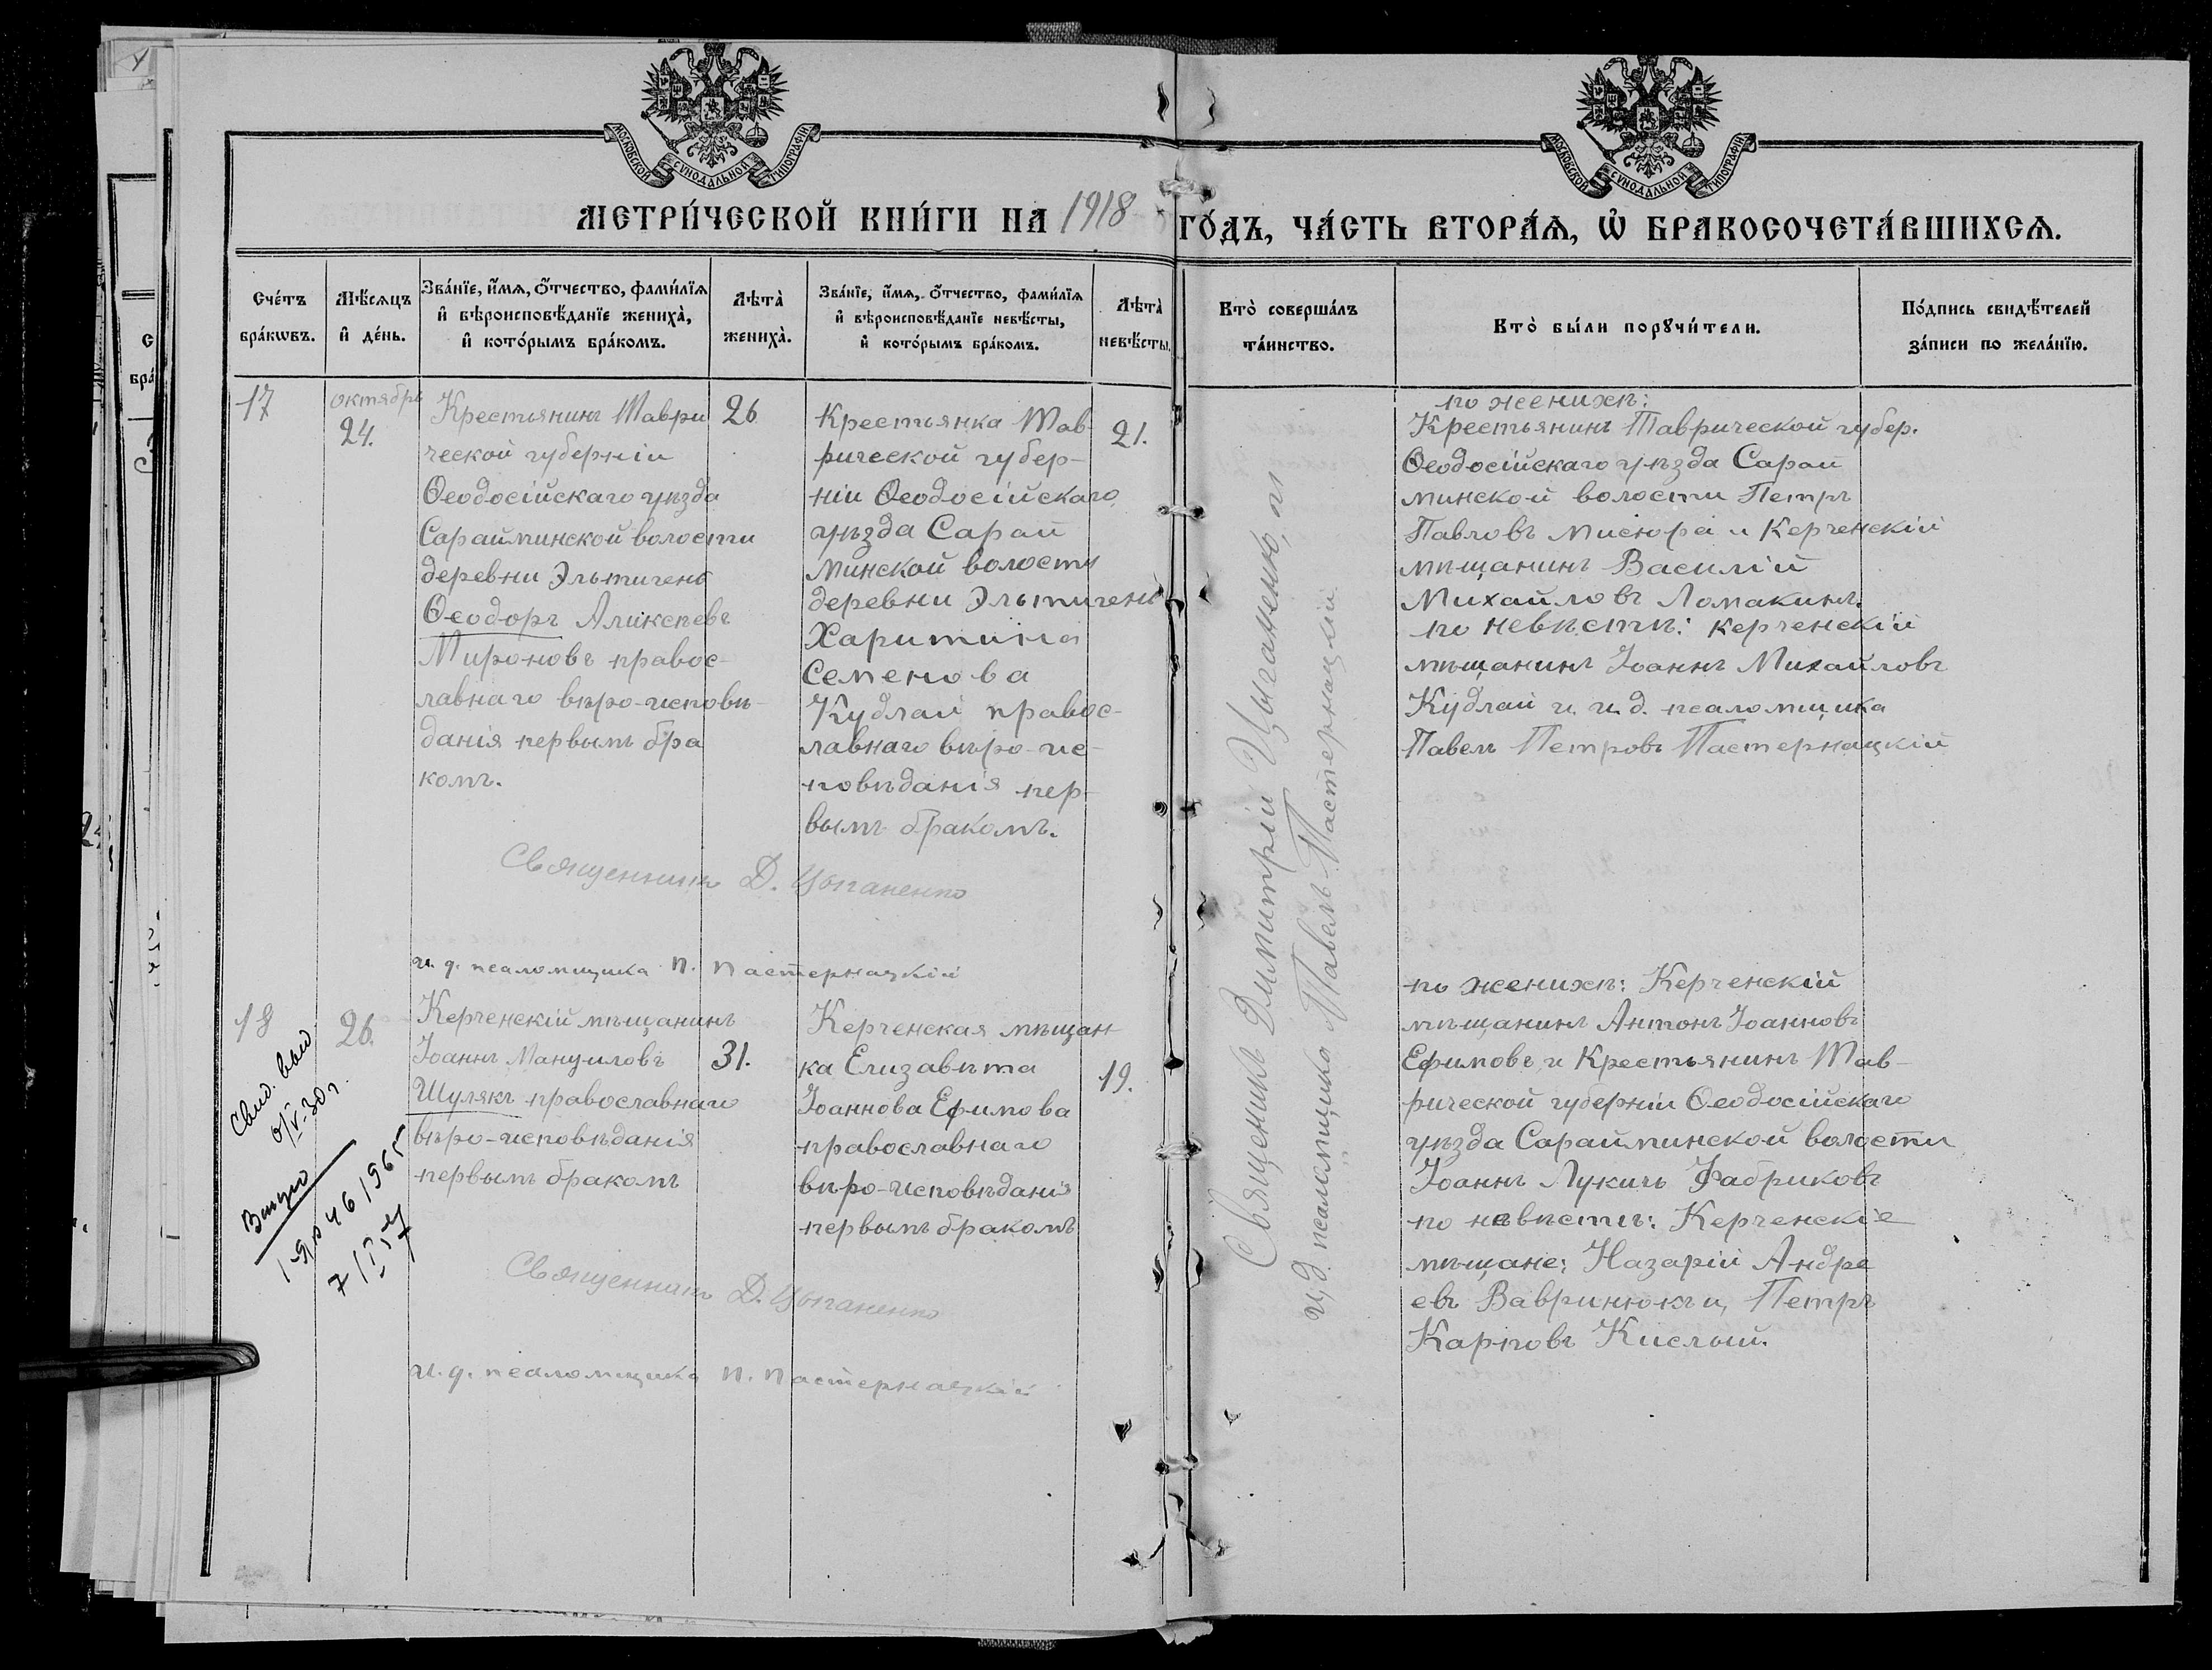 МОСКОВСКОЙ СѴНОДАЛЬНОЙ ТИПОГРАФІИ
МОСКОВСКОЙ СѴНОДАЛЬНОЙ ТИПОГРАФІИ
МЕТРИ́ЧЕСКОЙ КНИ́ГИ НА 1918 ГО́ДЪ, ЧА́СТЬ ВТОРА́Ѧ, Ѡ҆ БРАКОСОЧЕТА́ВШИХСѦ.
Сче́тъ
бра́кѡвъ.
Мѣ́сяцъ
и҆ де́нь.
Зва́нїе, и҆́мѧ, ѻ҆́тчество, фами́лїѧ
и҆ вѣроисповѣ́данїе жениха̀,
и҆ кото́рымъ бра́комъ.
Лѣта̀
жениха̀.
Зва́нїе, и҆́мѧ, ѻ҆́тчество, фами́лїѧ
и҆ вѣроисповѣ́данїе невѣ́сты,
и҆ кото́рымъ бра́комъ.
Лѣта̀
невѣ́сты.
Кто̀ соверша́лъ
та́инство.
Кто̀ бы́ли порꙋчи́тели.
По́дпись свидѣ́телей
за́писи по жела́нїю.
17
октябрь
24.
Крестьянинъ Таври
ческой губерніи
Ѳеодосійскаго уѣзда
Сарайминской волости
деревни Эльтигенъ
Ѳеодоръ Аликсѣевъ
Мироновъ правос-
лавнаго вѣро-исповѣ-
данія первымъ бра
комъ.
26
Крестьянка Тав
рической губер-
ніи Ѳеодосійскаго
уѣзда Сарай
минской волости
деревни Эльтигень
Харитина
Семенова
Кудлай правос-
лавнаго вѣро-ис-
повѣданія пер-
вымъ бракомъ.
21.
Священникъ Д. Цыганенко
и. д. псаломщика П. Пастернацкій
Священникъ Димитрій Цыганенко, и
и. д. псаломщика Павелъ Пастернацкій
по женихѣ:
Крестьянинъ Таврической губер.
Ѳеодосійскаго уѣзда Сарай
минской волости Петръ
Павловъ Мисюра и Керченскій
мѣщанинъ Василій
Михайловъ Ломакинъ.
по невѣстѣ: Керченскій
мѣщанинъ Іоаннъ Михайловъ
Кудлай и и. д. псаломщика
Павелъ Петровъ Пастернацкій
18
26.
Керченскій мѣщанинъ
Іоаннъ Мануиловъ
Шулякъ православнаго
вѣро-исповѣданія
первымъ бракомъ
31.
Керченская мѣщан
ка Елизавѣта
Іоаннова Ефимова
православнаго
вѣро-исповѣданія
первымъ бракомъ
19.
Священникъ Д. Цыганенко
и. д. псаломщика П. Пастернацкій
по женихѣ: Керченскій
мѣщанинъ Антонъ Іоанновъ
Ефимовъ и Крестьянинъ Тав-
рической губерніи Ѳеодосійскаго
уѣзда Сарайминской волости
Іоаннъ Лукичъ Фабриковъ
по невѣстѣ: Керченскіе
мѣщане: Назарій Андре
евъ Вавринюкъ и Петръ
Карповъ Кислый.